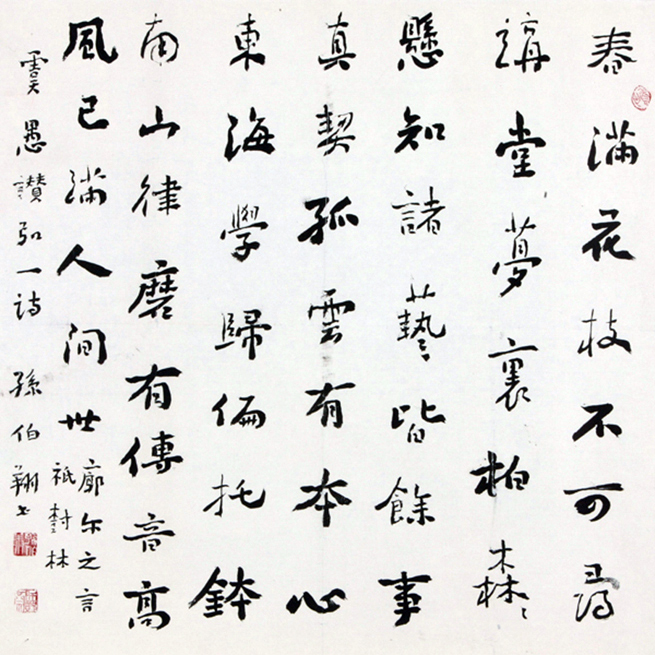 春滿花枝不可尋
講堂夢裏柏森々
懸知諸藝皆餘事
真契孤雲有本心
東海學歸偏托鉢
南山律磨有傳音高
風已滿人間世
廓尔之言
祇樹林
虞愚讚弘一诗 孫伯翔书